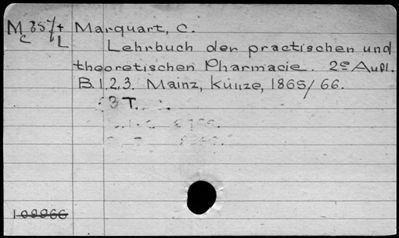 M 357/4 Marquart, C.
C L Lehrbuch der practischen und
theoretischen Pharmacie. 2e Aufl.
B. 1.2.3. Mainz, Kunze, 1865/66.
3 T.